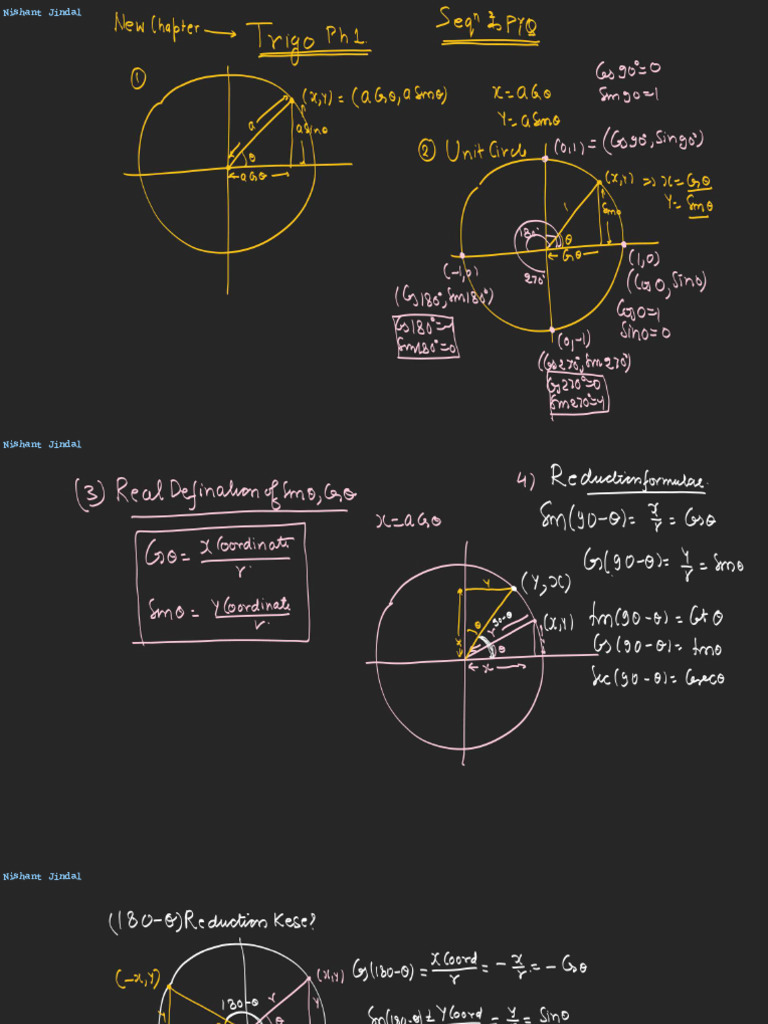 Nishant Jindal
New Chapter → Trigo Ph 1.
Seqⁿ & PYQ
①
(x,y) = (a Cosθ, a Sinθ)
a
a Sinθ
θ
a Cosθ
x = a Cosθ
y = a Sinθ
Cos 90° = 0
Sin 90 = 1
② Unit Circle
(0,1) = (Cos 90°, Sin 90°)
(x,y) ⇒ x = Cosθ
y = Sinθ
1
Sinθ
180°
θ
Cosθ
270°
(-1,0)
(Cos 180°, Sin 180°)
Cos 180° = -1
Sin 180° = 0
(1,0)
(Cos 0, Sin 0)
Cos 0 = 1
Sin 0 = 0
(0,-1)
(Cos 270°, Sin 270°)
Cos 270° = 0
Sin 270° = -1
Nishant Jindal
(3) Real Defination of Sinθ, Cosθ
Cosθ = x Coordinate / r.
Sinθ = y Coordinate / r.
x = a Cosθ
y
(y, x)
(x, y)
x
θ
90-θ
r
θ
x
4) Reduction formulae.
Sin(90-θ) = x/r = Cosθ
Cos(90-θ) = y/r = Sinθ
tan(90-θ) = Cot θ
Cot(90-θ) = tanθ
Sec(90-θ) = Cosecθ
Nishant Jindal
(180-θ) Reduction Kese?
(-x, y)
(x, y)
180-θ
r
y
y
θ
Cos(180-θ) = x Coord / r = -x/r = -Cosθ
Sin(180-θ) = y Coord / r = y/r = Sinθ